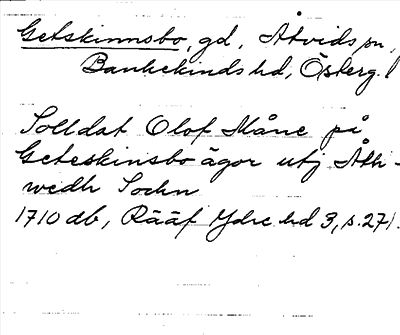 Getskinnsbo, gd, Åtvids sn,
Bankekinds hd, Österg.l
Solldat Olof Måne på
Geteskinsbo ägor utj Åth-
wedh Sochn
1710 db, Rääf Ydre hd 3, s. 271.